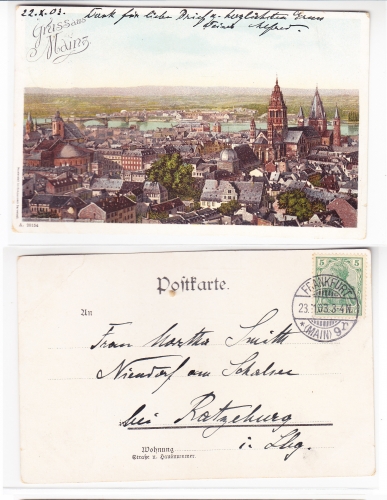 22.X.03. Dank für liebe Brief u. herzlichsten Gruss
Deines Alfred.
Gruss aus
Mainz
Postkarte.
An
Frau Martha Smith
Niendorf am Schalsee
bei Ratzeburg
i. Lbg.
Wohnung
Straße u. Hausnummer
5 5
FRANKFURT
23.
03. 3-4N.
*(MAIN) 9